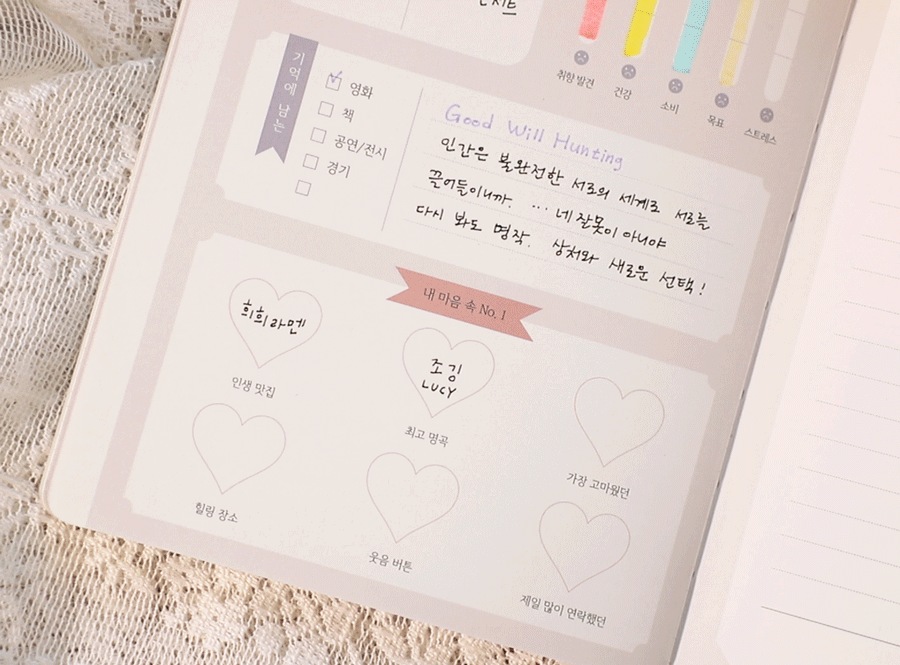 취향 발견
건강
소비
목표
스트레스
기억에 남는
영화
책
공연/전시
경기
Good Will Hunting
인간은 불완전한 서로의 세계로 서로를
끌어들이니까. ... 네 잘못이 아니야
다시 봐도 명작. 상처와 새로운 선택!
내 마음 속 No. 1
희희라멘
인생 맛집
조깅
LUCY
최고 명곡
가장 고마웠던
힐링 장소
웃음 버튼
제일 많이 연락했던